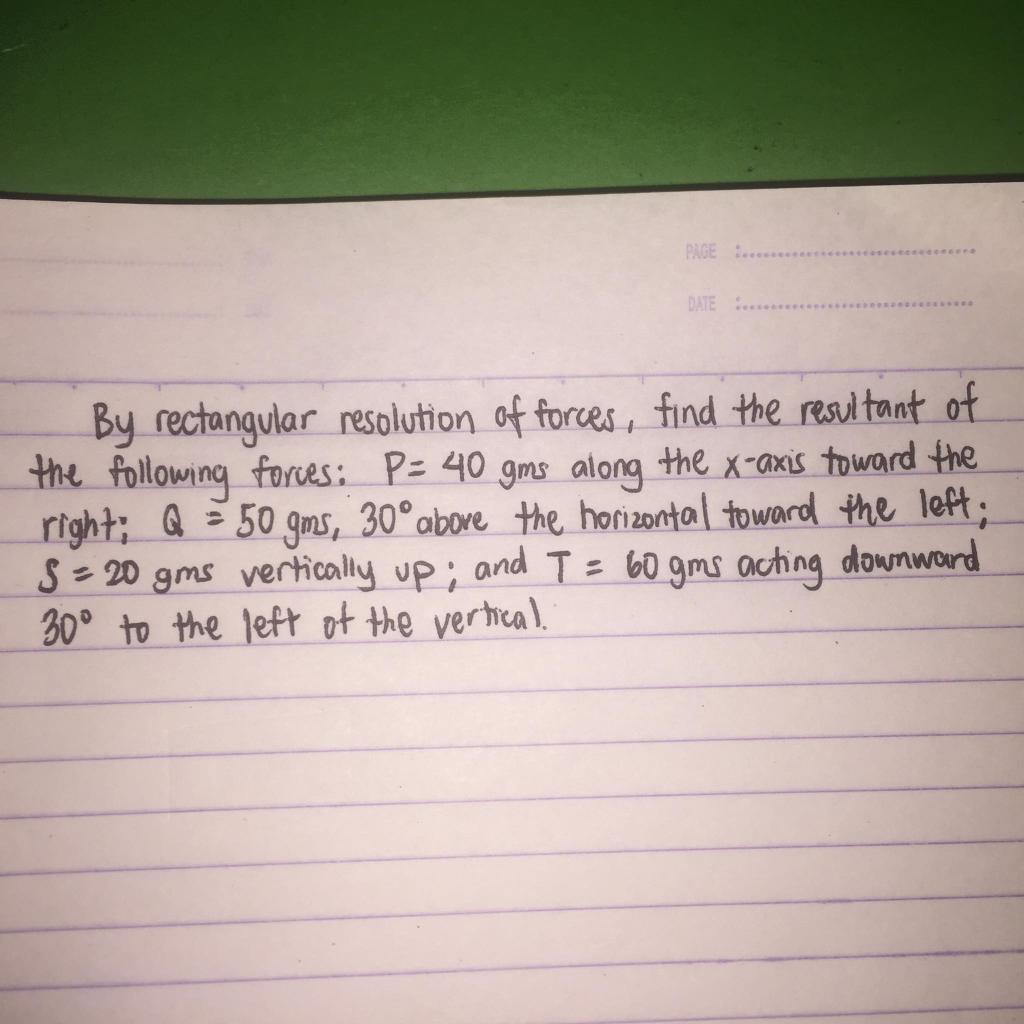 PAGE :
DATE :
By rectangular resolution of forces, find the resultant of
the following forces: P= 40 gms along the x-axis toward the
right; Q = 50 gms, 30° above the horizontal toward the left;
S = 20 gms vertically up; and T = 60 gms acting downward
30° to the left of the vertical.